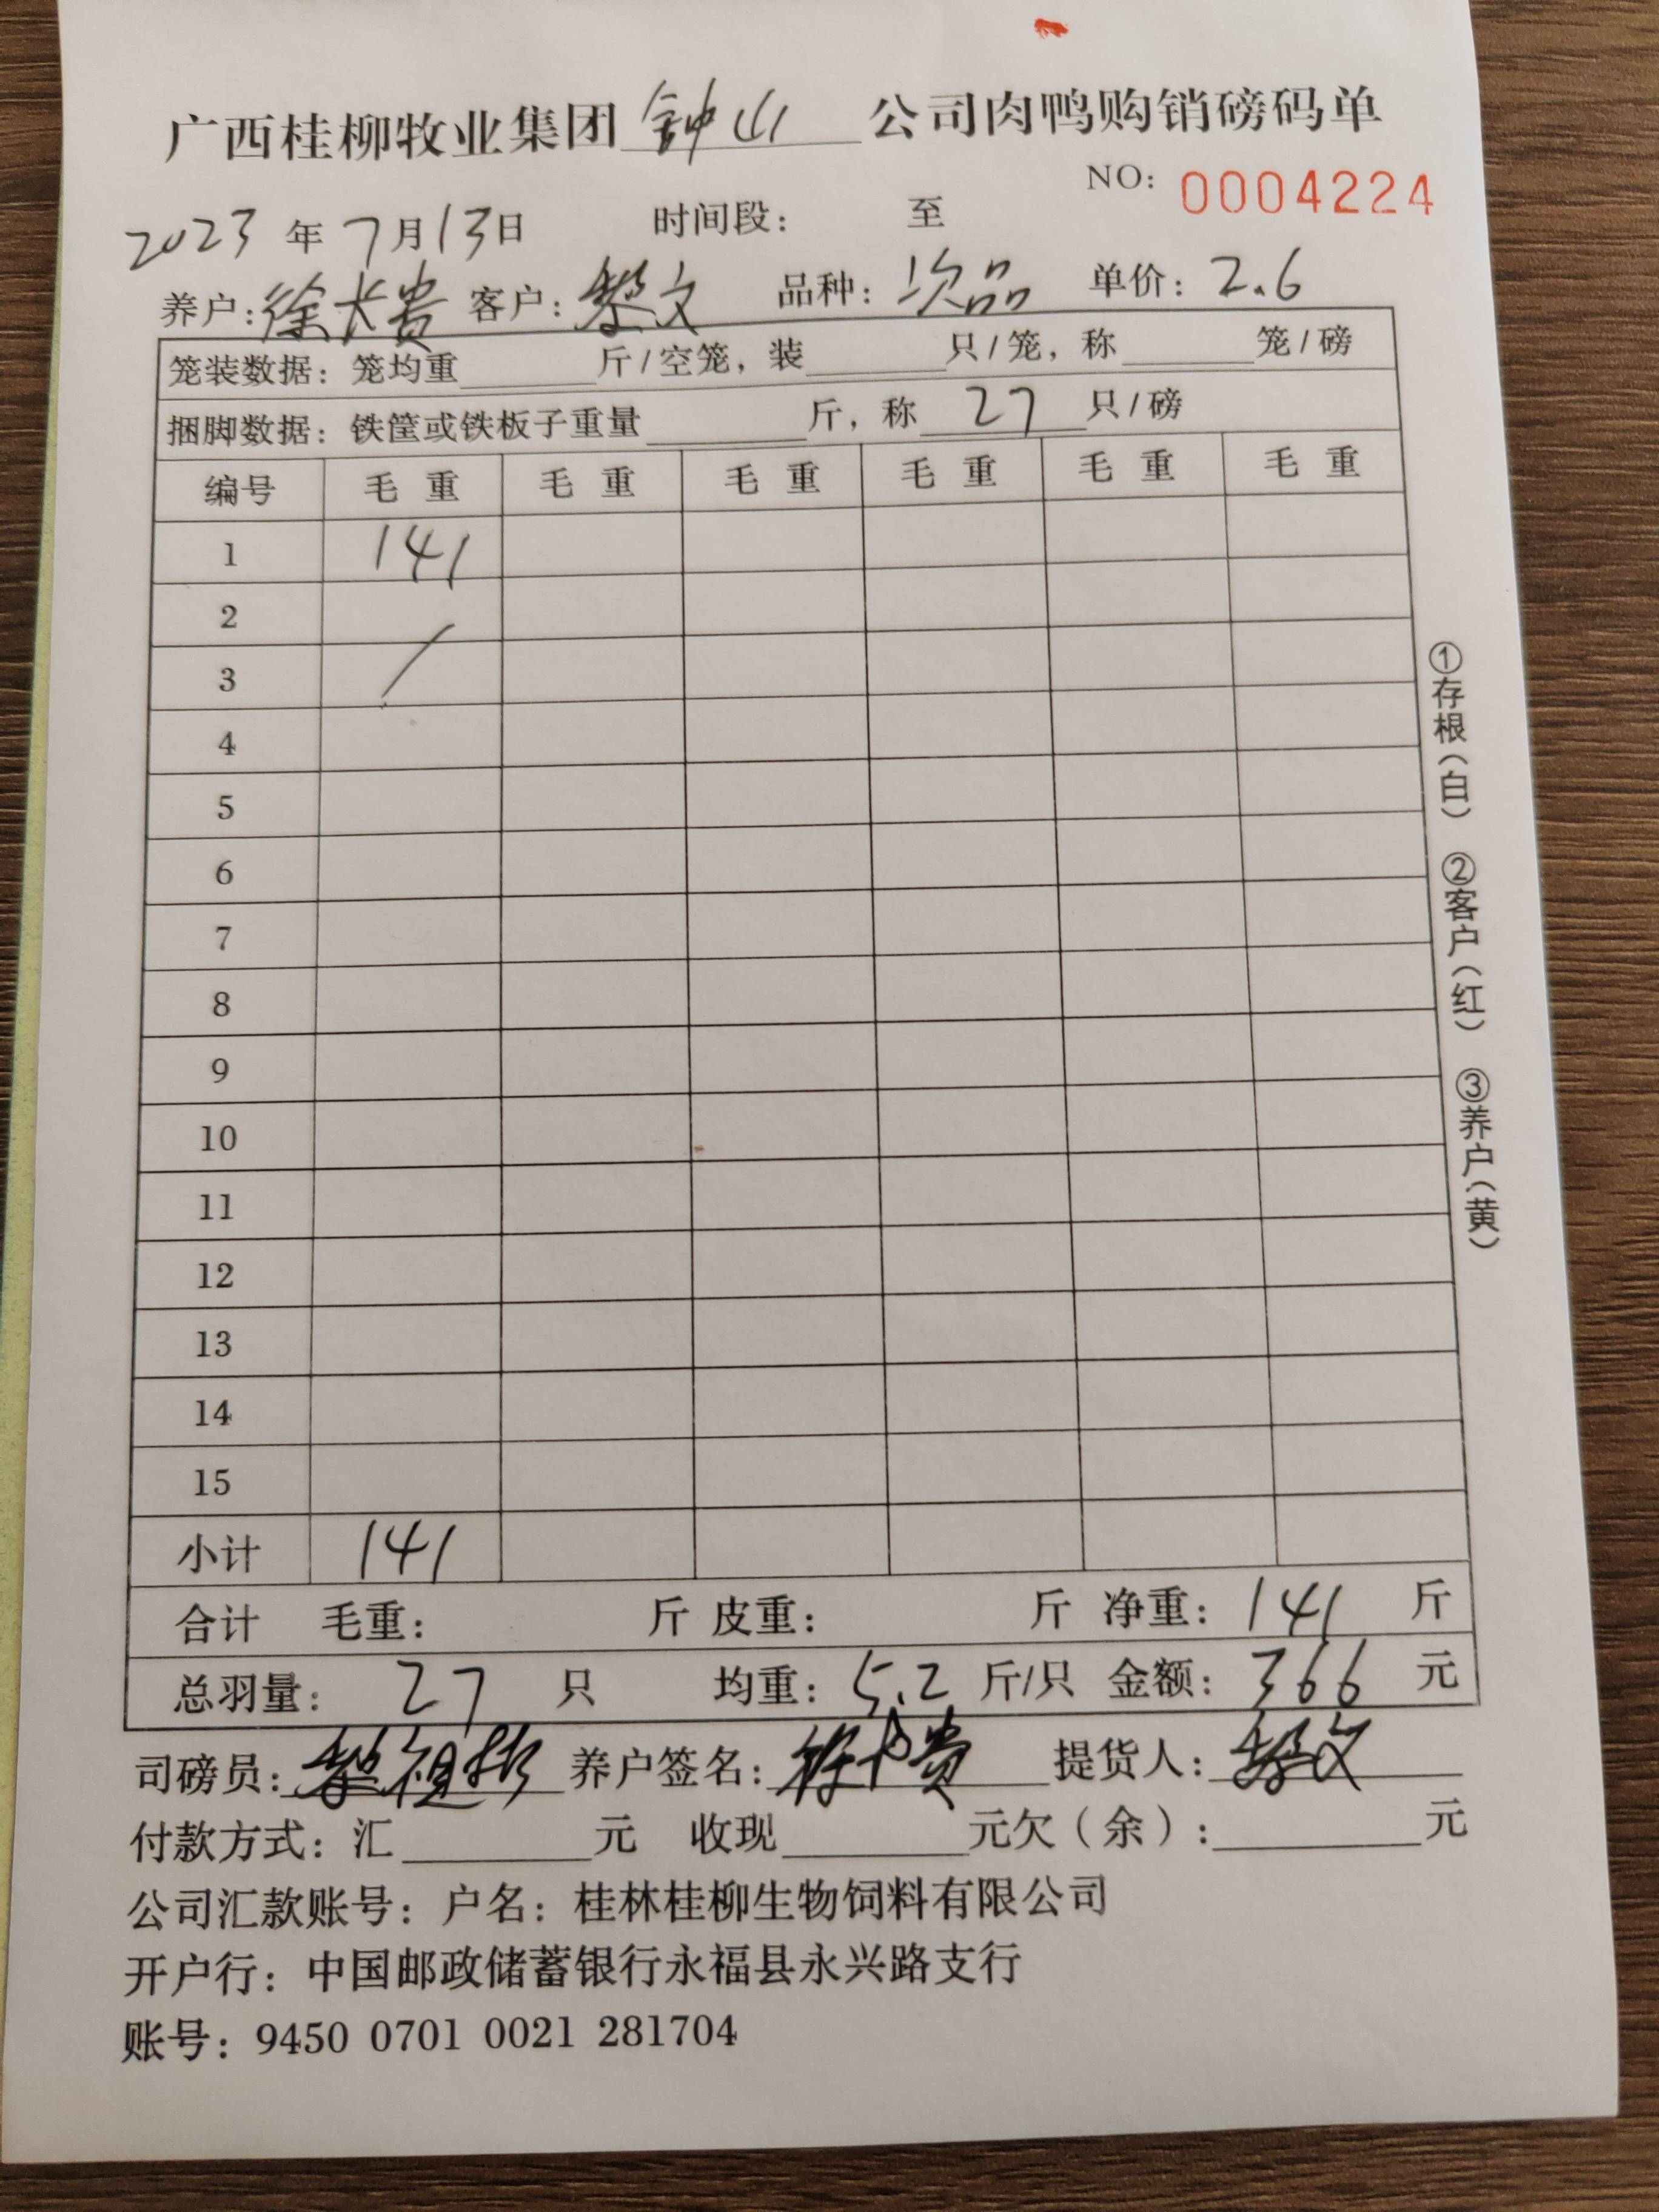 广西桂柳牧业集团 钟山 公司肉鸭购销磅码单
NO: 0004224
2023 年 7 月 13 日 时间段: 至
养户: 徐长贵 客户: 黎文 品种: 次品 单价: 2.6
笼装数据: 笼均重______斤/空笼, 装______只/笼, 称______笼/磅
捆脚数据: 铁筐或铁板子重量______斤, 称 27 只/磅
编号 毛重 毛重 毛重 毛重 毛重 毛重
1 141
2
3
4
5
6
7
8
9
10
11
12
13
14
15
小计 141
合计 毛重: 斤 皮重: 斤 净重: 141 斤
总羽量: 27 只 均重: 5.2 斤/只 金额: 366 元
司磅员: 养户签名: 徐长贵 提货人: 黎文
付款方式: 汇______元 收现______元欠(余):______元
公司汇款账号: 户名: 桂林桂柳生物饲料有限公司
开户行: 中国邮政储蓄银行永福县永兴路支行
账号: 9450 0701 0021 281704
①存根(白) ②客户(红) ③养户(黄)